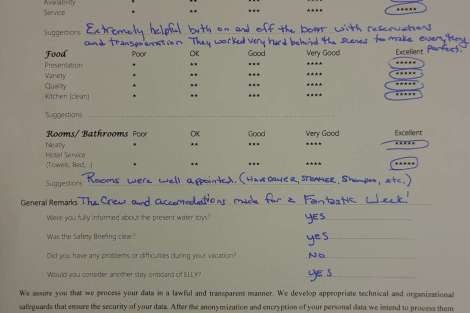 Availability
Service *****
Suggestions Extremely helpful both on and off the boat with reservations
and transportation They worked very hard behind the scenes to make everything
perfect.
Food Poor OK Good Very Good Excellent
Presentation * ** *** **** *****
Variety * ** *** **** *****
Quality * ** *** **** *****
Kitchen (clean) * ** *** **** *****
Suggestions
Rooms/ Bathrooms Poor OK Good Very Good Excellent
Neatly * ** *** **** *****
Hotel Service
(Towels, Bed,..) * ** *** **** *****
Suggestions Rooms were well appointed. ( STEAMER, Shampoo, etc.)
General Remarks The Crew and accomodations made for a Fantastic Week!
Were you fully informed about the present water toys? YES
Was the Safety Briefing clear? yes
Did you have any problems or difficulties during your vacation? No
Would you consider another stay onboard of ELLY? YES
We assure you that we process your data in a lawful and transparent manner. We develop appropriate technical and organizational
safeguards that ensure the security of your data. After the anonymization and encryption of your personal data we intend to process them